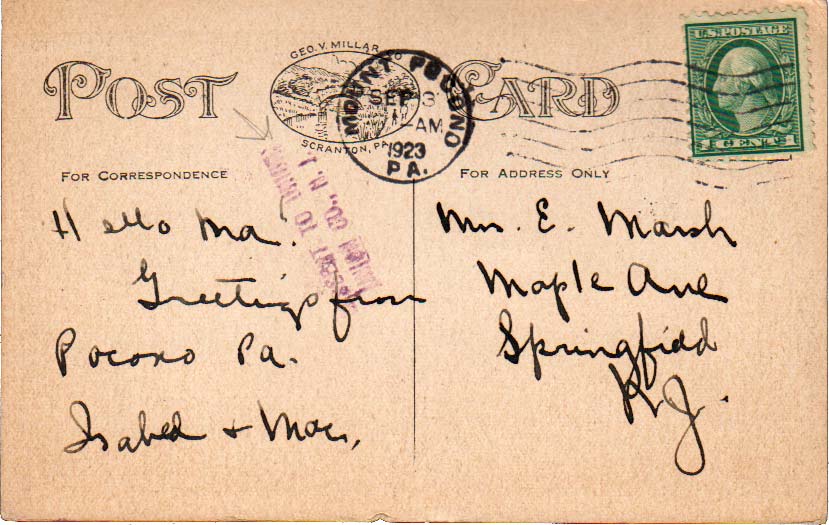 POST CARD
GEO. V. MILLAR & CO
SCRANTON, PA.
MOUNT POCONO
SEP 3
-AM
1923
PA.
U.S. POSTAGE
1 CENT 1
FOR CORRESPONDENCE
FOR ADDRESS ONLY
Hello Ma.
Greetings from
Pocono Pa.
Isabel + Mac.
Mrs. E. Marsh
Maple Ave
Springfield
N.J.
SENT TO UNION
UNION CO., N. J.